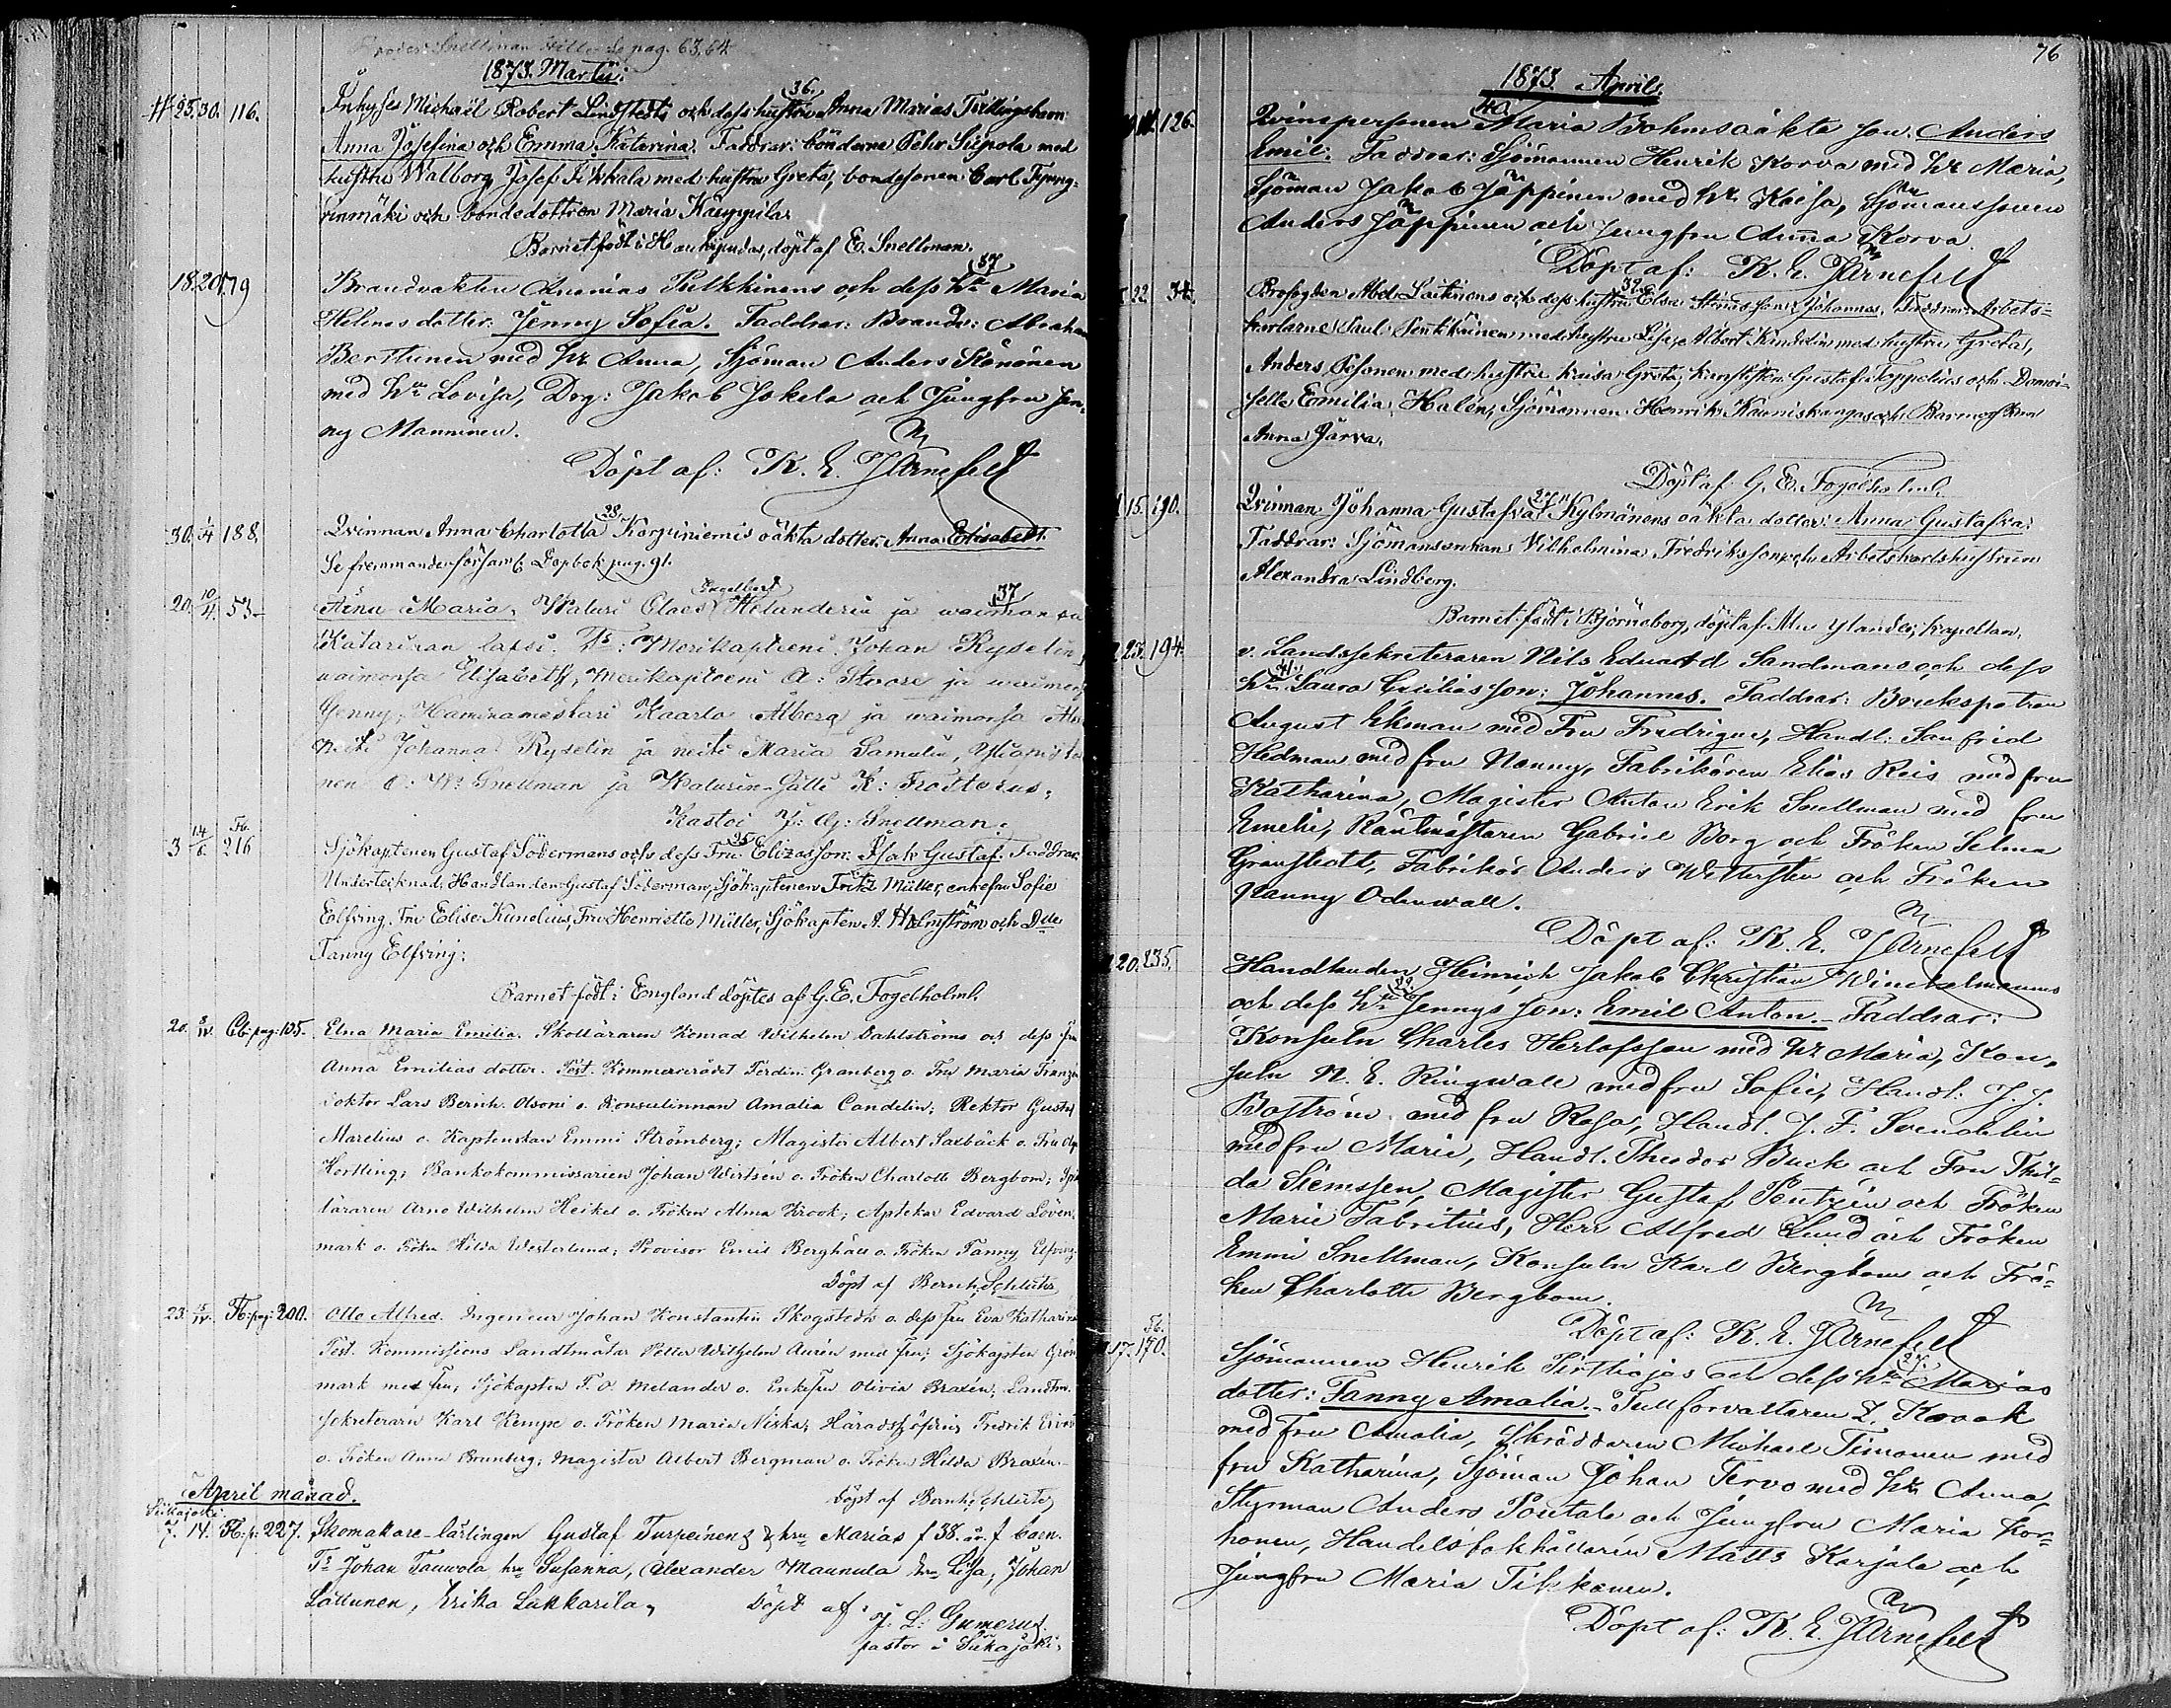 Snellman se pag. 63,64
1873. Martii.
23. 30. 116. Inhyses Michaël Robert Lindstedts och dess hustru Anna Marias Tvillingsbarn 36.
Anna Josefina och Emma Katarina. Faddrar: bönderne Pehr Siipola med
hustru Walborg, Josef Sikkala med hustru Greta, bondesonen Carl Tyyng-
rinmäki och bondedottren Maria Käyppila.
Barnet födt i Haukipudas, döpt af Ed. Snellman.
18. 20. 179 Brandvakten Ananias Pulkkinens och dess h:u Maria 37
Helenas dotter: Jenny Sofia. Faddrar: Brandv: Abraham
Berttunen med h:u Anna, Sjöman Anders Könönen
med h:u Lovisa, Drg: Jakob Jokela och Jungfru Jen-
ny Manninen.
Döpt af: K. E. Järnefelt
30. 1/4 188. Qvinnan Anna Charlotta Korpiniemis oäkta dotter: Anna Elisabett. 23.
Se fremmande förs:ns Dopbok pag. 91.
20. 10/4. 53 Aina Maria, Waluri Claes Engelbert Helanderin ja waimonsa 37
Katariinan lapsi. T:s: Merikapteeni Johan Ryselin
waimonsa Elisabeth, Merikapteeni A: Stoore ja waimon
Jenny, Haminamestari Kaarlo Alberg ja waimonsa
Neiti Johanna Ryselin ja neiti Maria Samulin, Ylioppilai
nen A: W: Snellman ja Walurin-Sälli K: Frosterus,
Kastoi J: Aj: Snellman.
3 14/6. Fb. 216 Sjökaptenen Gustaf Södermans och dess Fru Elizas son: Isak Gustaf. Faddrar: 25
Undertecknad, Handlanden Gustaf Söderman, Sjökaptenen Fritz Müller, enkefru Sofie
Elfving, Fru Elise Kunelius, Fru Henriette Müller, Sjökapten A. Holmström och D:lle
Fanny Elfving.
Barnet födt i England döptes af G. E. Fogelholm.
20. 8/IV. Cb: pag: 105. Elna Maria Emilia. Skolläraren Konrad Wilhelm Dahlströms och dess fru
Anna Emilias dotter. Test. Kommerserådet Ferdin. Granberg o. Fru Maria Franzén
Doktor Lars Bernh. Olsoni o. Konsulinnan Amalia Candelin; Rektor Gustaf
Marelius o. Kaptenskan Emmi Strömberg; Magister Albert Saxbäck o. Fru
Hortling; Bankokommissarien Johan Wirtsén o. Fröken Charlotte Bergbom;
läraren Arno Wilhelm Heikel o. Fröken Alma Krook; Aptekar Edvard Löven-
mark o. Fröken Hilda Westerlund; Provisor Emil Berghäll o. Fröken Fanny Elfving
Döpt af Bernh. Schlüter
23. 15/IV. Fb: pag: 200. Otto Alfred. Ingenieur Johan Konstantin Skogstedts o. dess fru Eva Katharina
Test. Kommissions Landtmätar Petter Wilhelm Aurén med fru; Sjökapten Grön
mark med fru; Sjökapten F. O. Melander o. Enkefru Olivia Braxén; Landtm.
sekreterarn Karl Kempe o. Fröken Maria Niska; Häradshöfding Fredrik
o. Fröken Anna Brunberg; Magister Albert Bergman o. Fröken Hilda Braxén.
Döpt af Bernh. Schlüter
April månad.
Siikajoki
7. 14. Fb: p: 227. Skomakare-lärlingen Gustaf Turpeinens & hru Marias f 38 år f barn.
T:s Johan Tauvola hru Susanna, Alexander Maunula hru Lisa, Johan
Lättunen, Erika Lukkarila,
Döpt af
J: L: Gumerus.
pastor i Siikajoki.
76
1873. Aprils.
126. Qvinspersonen Maria Bohms oäkta son: Anders 40.
Emil. Faddrar: Sjömannen Henrik Korva med h:u Maria,
Sjöman Jakob Jäppinen med h:u Kaisa, Sjömanssonen
Anders Jäppinen och Jungfru Anna Korva.
Döpt af: K. E. Järnefelt
22. 34. Profossen Abel Laitinens och dess hustru Elsa Stinas son: Johannes, Faddrar: Arbets-
karlarne Paul Pentikäinen med hustru Lisa, Albert Kindelin med hustru Greta,
Anders Pesonen med hustru Kaisa Greta, Gustaf Toppelius och Demoi-
selle Emilia Halén, Sjömannen Henrik Kauniskangas och Barnmorskan
Anna Järva.
Döpt af G. E. Fogelholm.
15. 190. Qvinnan Johanna Gustafva Kylmänens oäkta dotter: Anna Gustafva. 27
Faddrar: Sjömansenkan Vilhelmina Fredriksson och Arbetskarlshustrun
Alexandra Lindberg.
Barnet födt i Björneborg, döpt af M. Ylander, kapellan.
25. 194. v. Landssekreteraren Nils Eduard Sandmans och dess
h:u Laura Cecilias son: Johannes. Faddrar: Brukspatron 41.
August Ekman med Fru Fredrique, Handl: Sanfrid
Hedman med fru Nanny, Fabrikören Elias Reis med fru
Katharina, Magister Anton Erik Snellman med fru
Emelie, Räntmästaren Gabriel Borg och Fröken Selma
Granstedt, Fabrikör Anders Wettersten och Fröken
Nanny Odenwall.
Döpt af: K. E. Järnefelt
20. 235. Handlanden Heinrich Jakob Christian Winckelmanns
och dess h:u Jennys son: Emil Anton. Faddrar:
Konsuln Charles Herlofssen med h:u Maria, Kon-
suln N. E. Ringwall med fru Sofie, Handl: J. J.
Boström med fru Rosa, Handl. J. F. Svendelin
med fru Marie, Handl. Theodor Buck och Fru Thil-
da Siemssen, Magister Gustaf Pentzin och Fröken
Marie Fabritius, Herr Alfred Lund och Fröken
Emmi Snellman, Konsuln Karl Bergbom och Frö-
ken Charlotte Bergbom.
Döpt af: K. E. Järnefelt
17. Fb. 170. Sjömannen Henrik Pirttiojas och dess h:u Marias 27.
dotter: Fanny Amalia. Tullförvaltaren Z. Krook
med fru Amalia, Skräddaren Michael Timonen med
fru Katharina, Sjöman Johan Tervo med h:u Anna,
Styrman Anders Poutala och Jungfru Maria Kor-
honen, Handelsbokhållaren Matts Karjala och
Jungfru Maria Tikkanen.
Döpt af: K. E. Järnefelt